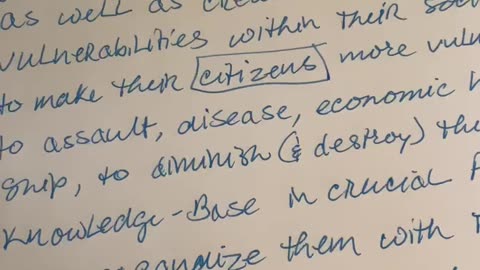 as well as
vulnerabilities within their
to make their citizens more
to assault, disease, economic
ship, to diminish (& destroy)
Knowledge-Base in crucial
them with